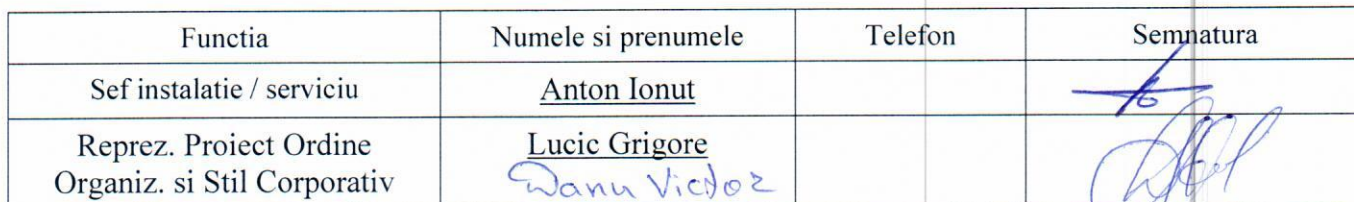 Functia Numele si prenumele Telefon Semnatura
Sef instalatie / serviciu Anton Ionut
Reprez. Proiect Ordine Lucic Grigore
Organiz. si Stil Corporativ Danu Victor